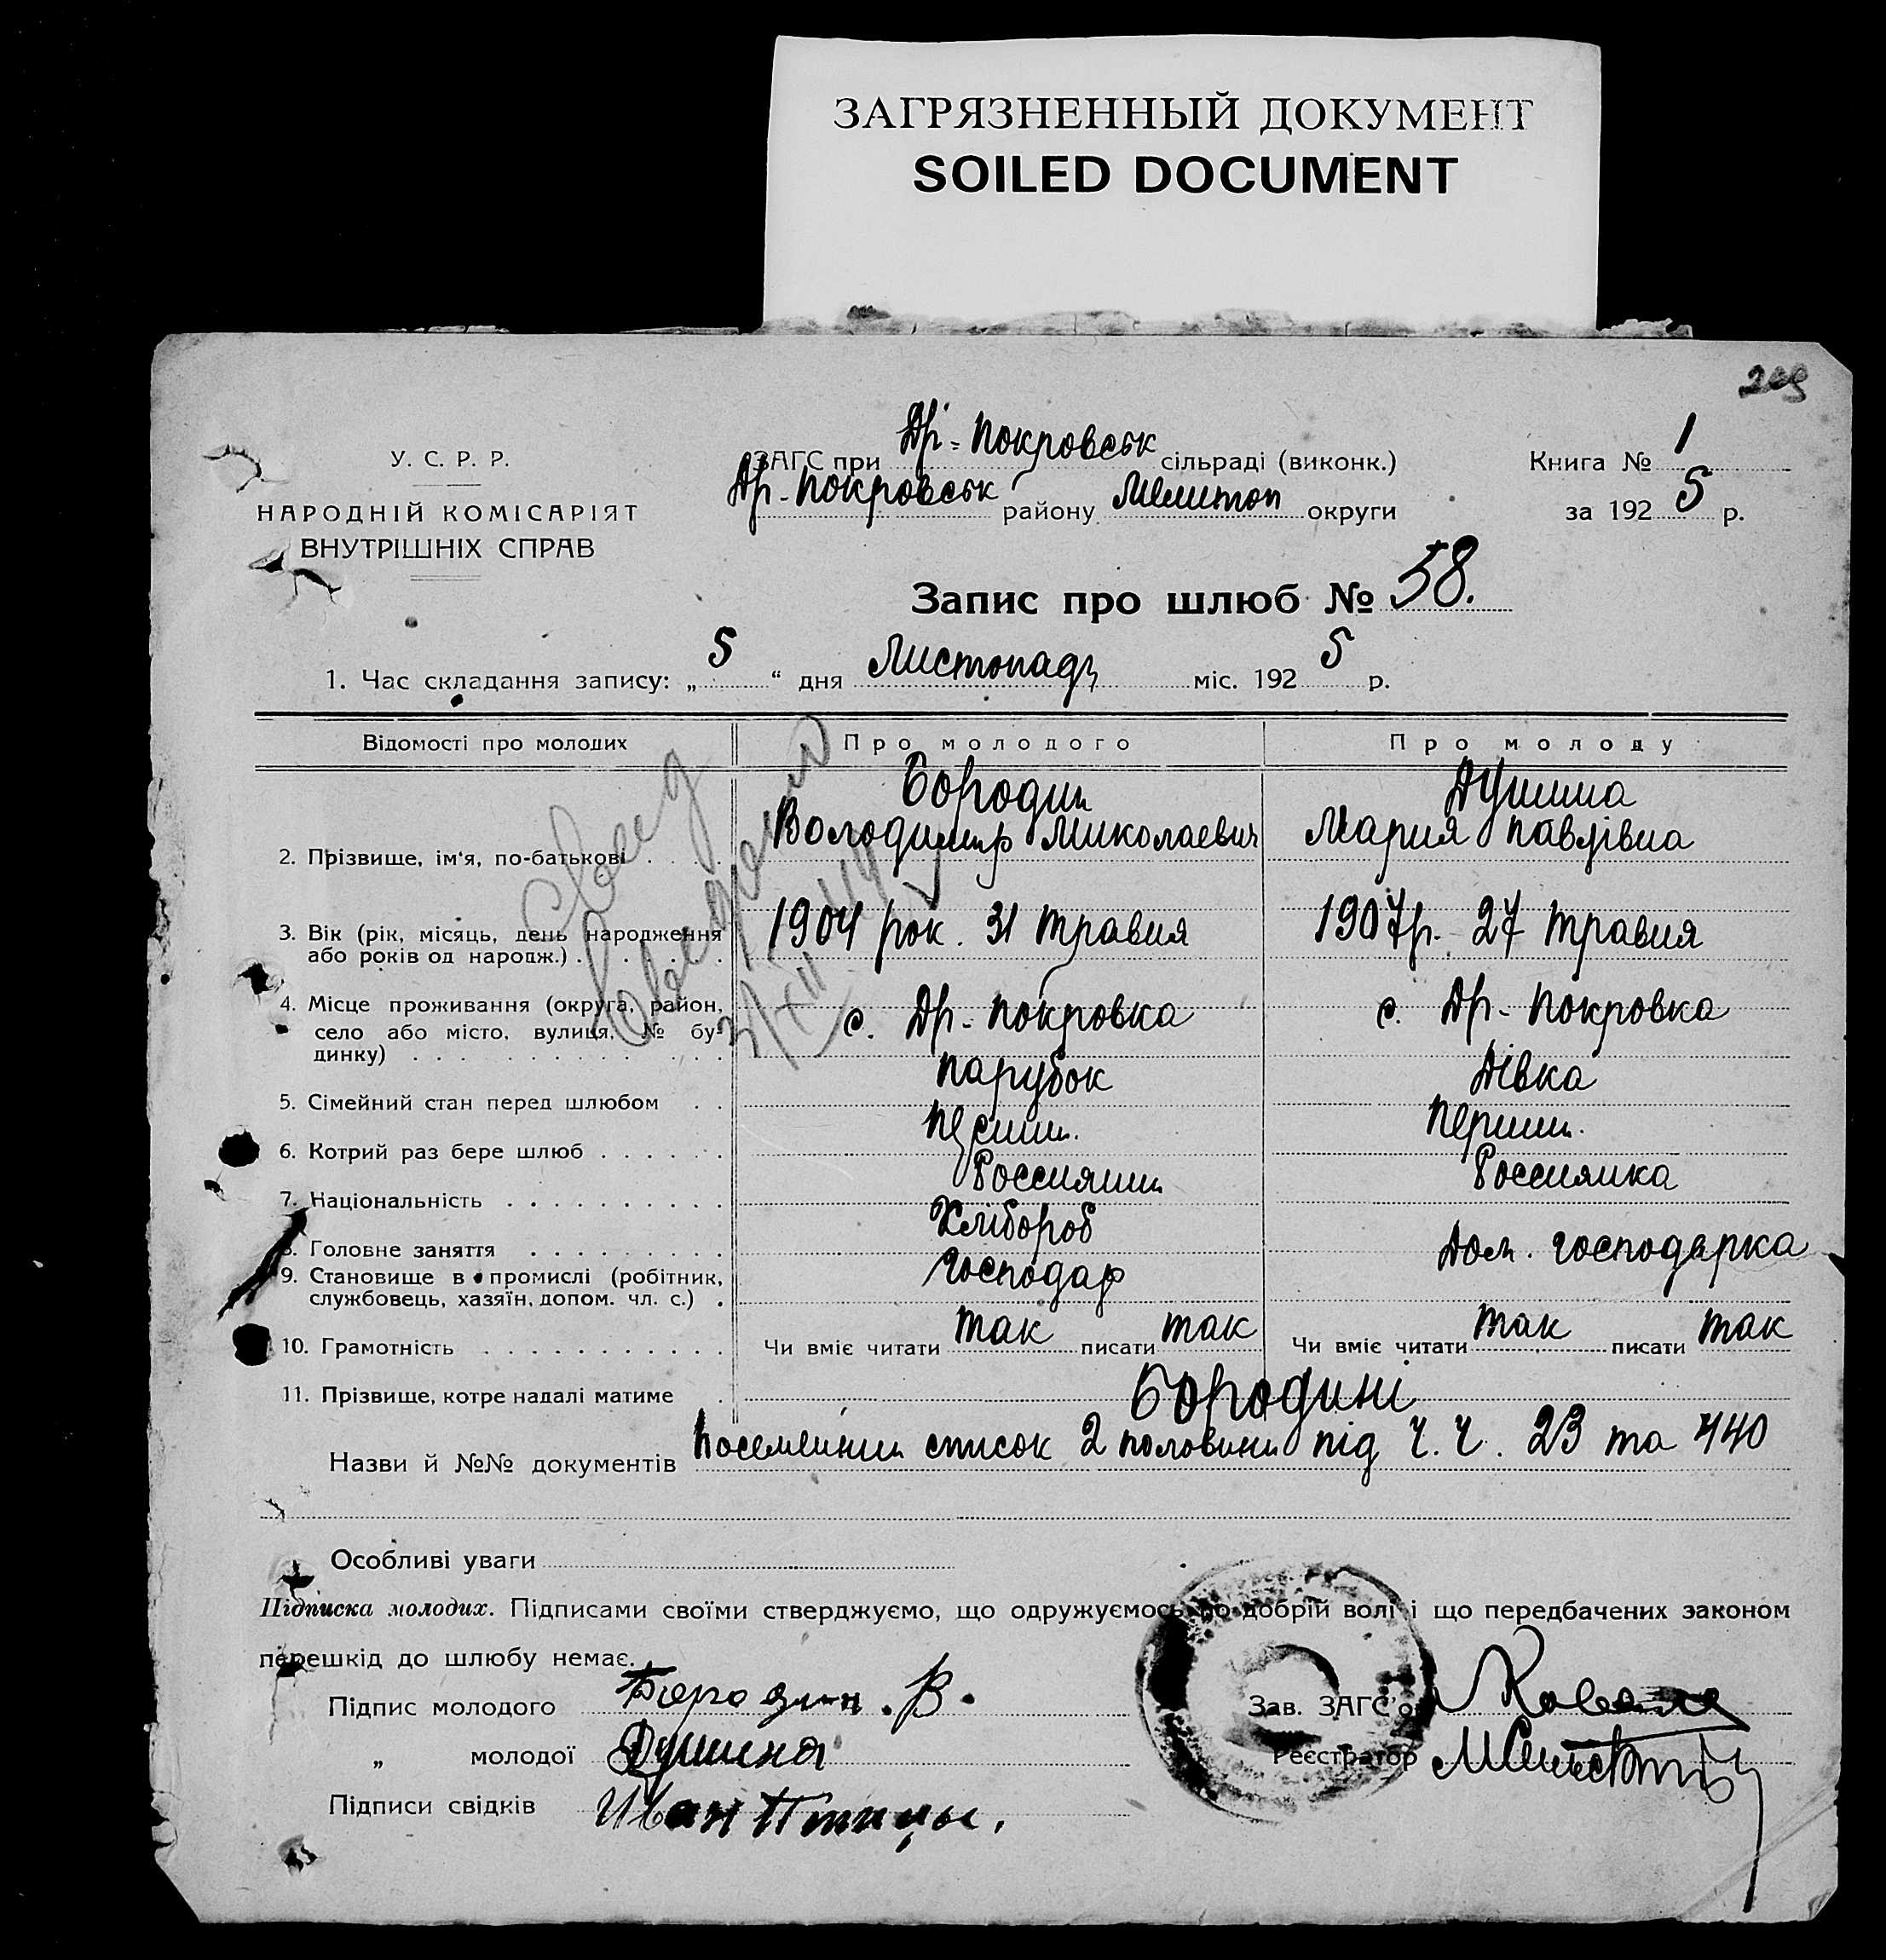 ЗАГРЯЗНЕННЫЙ ДОКУМЕНТ
SOILED DOCUMENT
209
У. С. Р. Р.
НАРОДНІЙ КОМІСАРІЯТ
ВНУТРІШНІХ СПРАВ
ЗАГС при Др-Покровськ сільраді (виконк.)
Др-Покровськ району Мелитоп округи
Книга № 1
за 1925 р.
Запис про шлюб № 58.
1. Час складання запису: „5“ дня Листопада міс. 1925 р.
Відомості про молодих
Про молодого
Про молоду
2. Прізвище, ім'я, по-батькові
Бородин
Володимир Миколаевич
Душина
Мария Павлівна
3. Вік (рік, місяць, день народження
або років од народж.)
1904 рок. 31 травня
1907р. 27 травня
4. Місце проживання (округа, район,
село або місто, вулиця, № бу-
динку)
с. Др-Покровка
с. Др-Покровка
5. Сімейний стан перед шлюбом
парубок
дівка
6. Котрий раз бере шлюб
перший.
перший.
7. Національність
Россиянин
Россиянка
8. Головне заняття
Хлібороб
Дом. господарка
9. Становище в промислі (робітник,
службовець, хазяїн, допом. чл. с.)
Господар
10. Грамотність
Чи вміє читати так писати так
Чи вміє читати так писати так
11. Прізвище, котре надалі матиме
Бородині
Назви й №№ документів Посемейний список 2 половини під ч.ч. 23 та 440
Особливі уваги
Підписка молодих. Підписами своїми стверджуємо, що одружуємось по добрій волі і що передбачених законом
перешкід до шлюбу немає.
Підпис молодого Бородин. В.
„ молодої Душина
Підписи свідків Иван Птицы.
Зав. ЗАГС'ом
Реєстратор